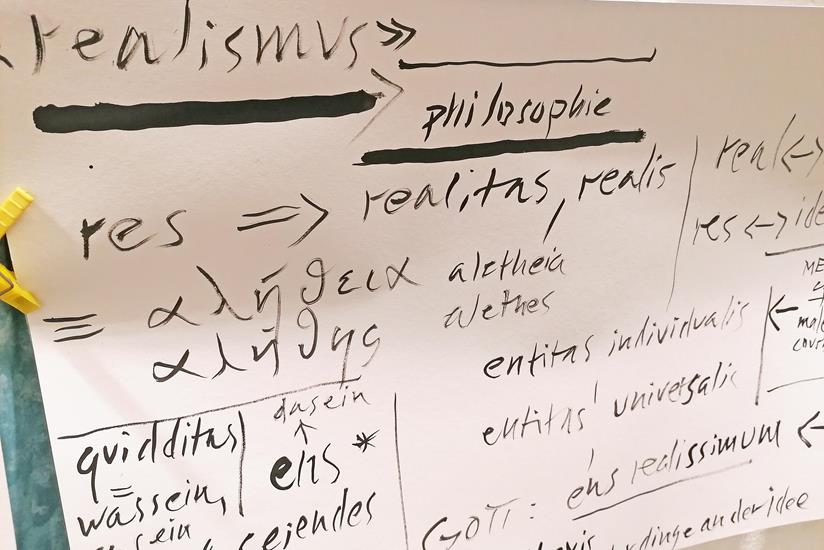 realismus»
philosophie
res => realitas, realis
real <->
res <->
≡ αλήθεια aletheia
αλήθης alethes
entitas individualis
entitas universalis
dasein
↑
quidditas ens *
=
wassein,
seiendes
GOTT: ens realissimum <-
dinge an der idee